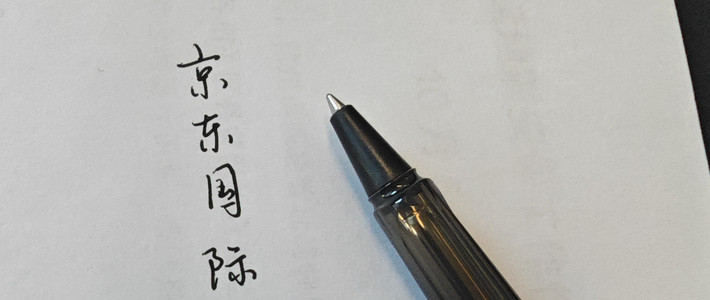 京东国际